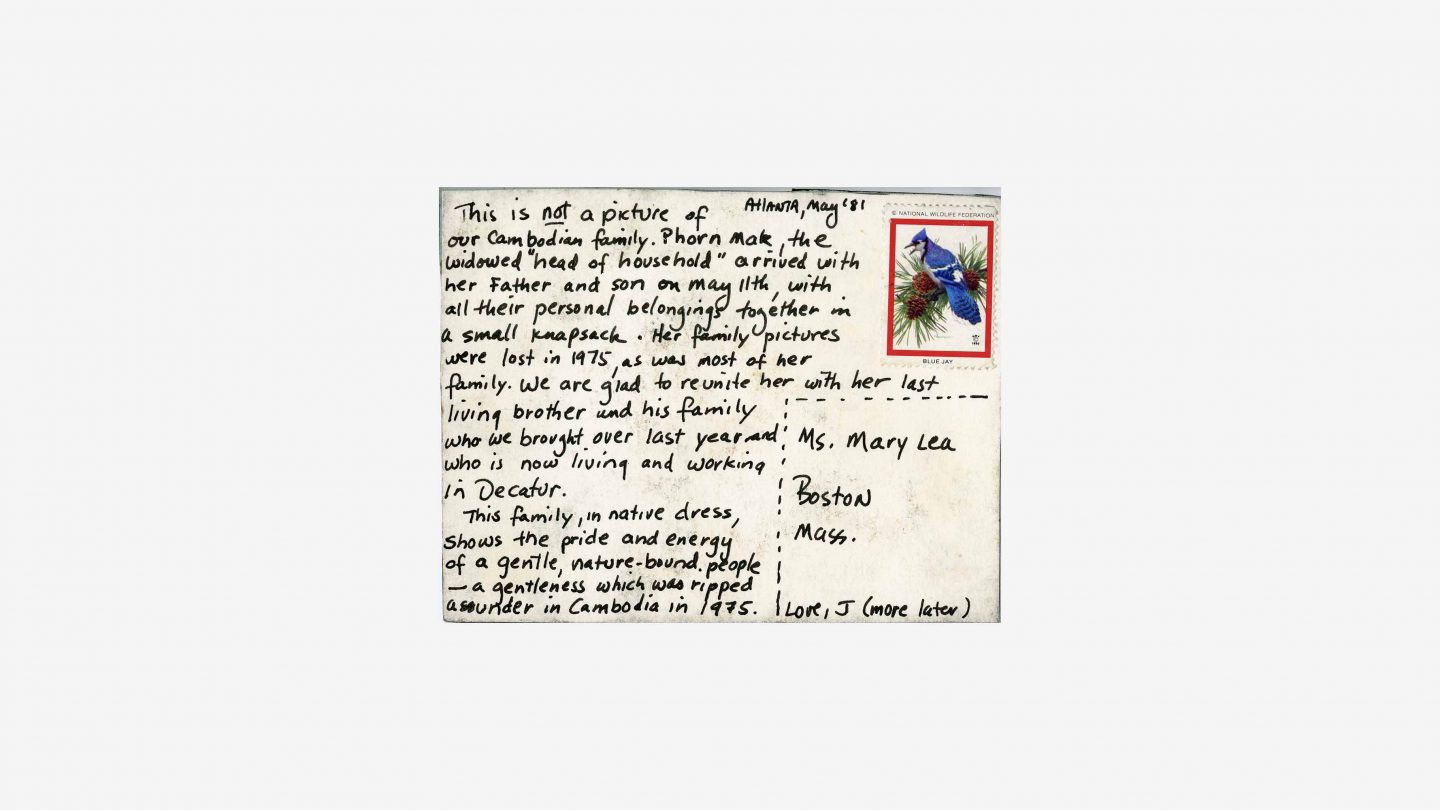 Atlanta, May '81
This is not a picture of
our Cambodian family. Phorn Mak, the
widowed "head of household" arrived with
her Father and son on May 11th, with
all their personal belongings together in
a small knapsack. Her family pictures
were lost in 1975, as was most of her
family. We are glad to reunite her with her last
living brother and his family
who we brought over last year and
who is now living and working
in Decatur.
This family, in native dress,
shows the pride and energy
of a gentle, nature-bound people
— a gentleness which was ripped
asounder in Cambodia in 1975.
© NATIONAL WILDLIFE FEDERATION
BLUE JAY
Ms. Mary Lea
Boston
Mass.
Love, J (more later)